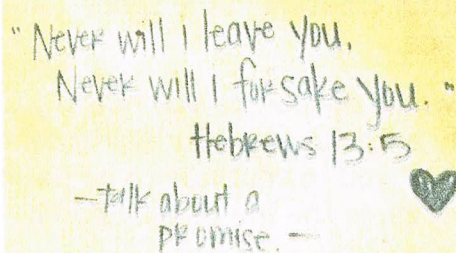 "Never will I leave you.
Never will I forsake you."
Hebrews 13:5
-talk about a
promise.-